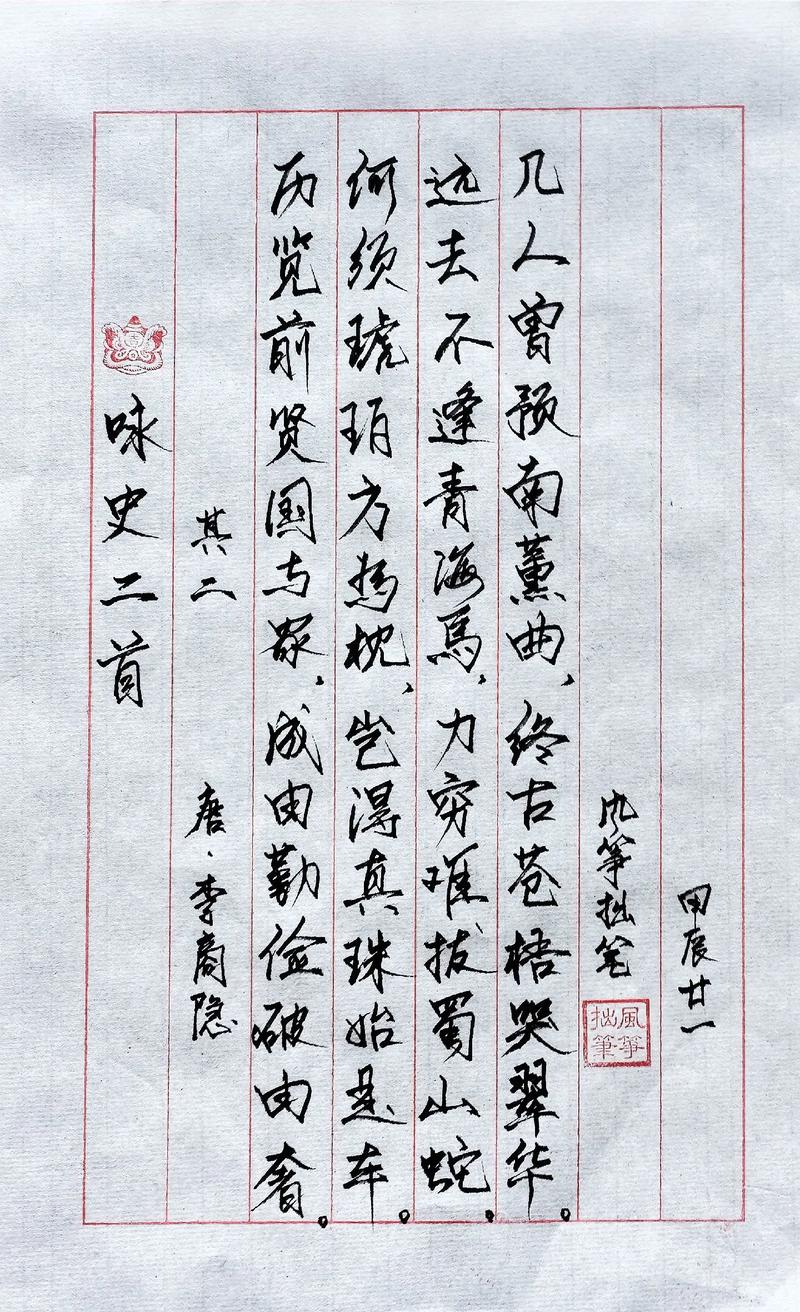 咏史二首
其二 唐、李商隐
历览前贤国与家，成由勤俭破由奢。
何须琥珀方为枕，岂得真珠始是车。
远去不逢青海马，力穷难拔蜀山蛇。
几人曾预南薰曲，终古苍梧哭翠华。
风筝拙笔
風箏拙筆
甲辰廿一